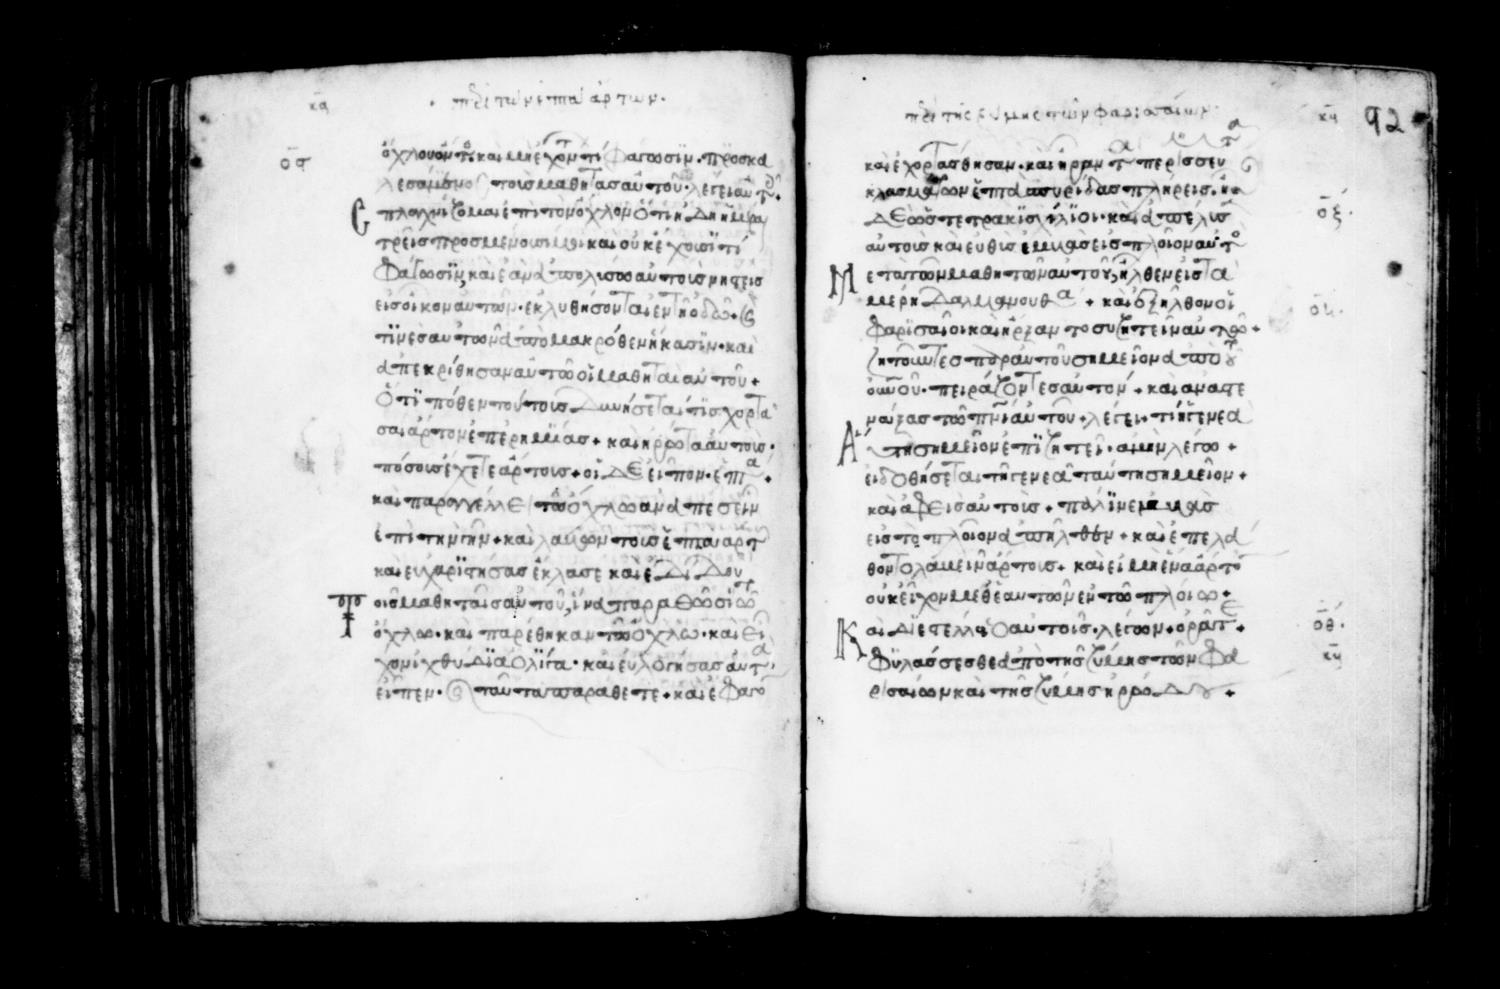 κα
πε τῶν ἑπτα ἄρτων.
ος
ὄχλου ὄντος και μὴ ἐχόντ τί φάγωσϊν. προσκα
λεσάμενος τοῖς μαθητας αὐτοῦ. λέγει αὐτ
πλαγχνίζομαι ἐπι τὸν ὄχλον Ὅτι ἤδη ἡμέραι
τρεῖς προσμένουσι μοι και οὐκ ἔχουσϊ τί
φάγωσϊν, και ἐὰν ἀπολύσω αὐτοις νηστεις
εἰς οἶκον αὐτῶν. ἐκλυθήσονται ἐν τῇ ὁδῶ +
τϊνὲς αὐτῶν ἀπο μακρόθεν ἥκασϊν. και
ἀπεκρίθησαν αὐτῶ οἱ μαθηται αὐτοῦ +
Ὅτϊ πόθεν τούτοις δυνήσεται τϊς χορτά
σαι ἄρτον ἐπ ἐρημίας + και ηρώτα αὐτοις.
πόσοις ἔχετε ἄρτοις + οἱ ΔΕ εἶπον. ἑπτα +
και παραγγέλλει τῶ ὄχλω ἀναπεσεῖν
ἐπι τὴν γῆν + και λαβὼν τοις ἑπτα αρτ
και εὐχαρϊστήσας ἔκλασε και ἐδίδου
τοις μαθηταις αὐτοῦ, ἵνα παραθῶσϊ τῶ
ὄχλω. και παρέθηκαν τῶ ὄχλω. και εἶ
χον ϊχθύδϊα ὀλΐγα. και εὐλογήσας αὐτα,
εἶπεν. ταῦτα παραθετε + και ἔφαγο
πε της ζύμης τῶν φαρισαίων.
κη
92
και ἐχορτάσθησαν. και ἦραν τ περισσευ
κλασμάτων ἑπτα σπυρίδας πλήρεις. ἦσ
ΔΕ ὡς τετρακισχίλϊοι. και ἀπέλυσ
οξ.
αὐτοις και εὐθὶς ἐμβὰς εἰς πλοῖον αὐτο
Μετα τῶν μαθητῶν αὐτοῦ, ἦλθεν εἰς τα
μέρη Δαλμανουθα + και ἐξῆλθον οἱ
οη.
φαρϊσαῖοι και ἤρξαντο συζητεῖν αὐτῶ +
ζητοῦντες παρ αὐτοῦ σημεῖον ἀπο τ
οὐνοῦ. πειράζοντες αὐτὸν + και ἀναστε
νάξας τῶ πνι αὐτοῦ + λέγει. τί ἡ γενεὰ
Αὕτη σημεῖον ἐπϊζητεῖ. αμὴν λέγω +
εἰ δοθήσεται τῆ γενεᾶ ταύτη σημεῖον +
και ἀφεὶς αὐτοις + πάλϊν ἐμβὰς
εἰς τὸ πλοῖον ἀπῆλθεν + και ἐπελά
θοντο λαβεῖν ἄρτοις + και εἰ μὴ ἕνα ἄρτο
οὐκ εἶχον μεθ ἑαυτῶν ἐν τῶ πλοίω +
Και Διεστέλλετο αὐτοις. λέγων + ὁρᾶτε +
οθ.
φϋλάσσεσθε ἀπὸ τῆς ζύμης τῶν φα
κη
ρισαίων και τῆς ζύμης ἡρώδου +